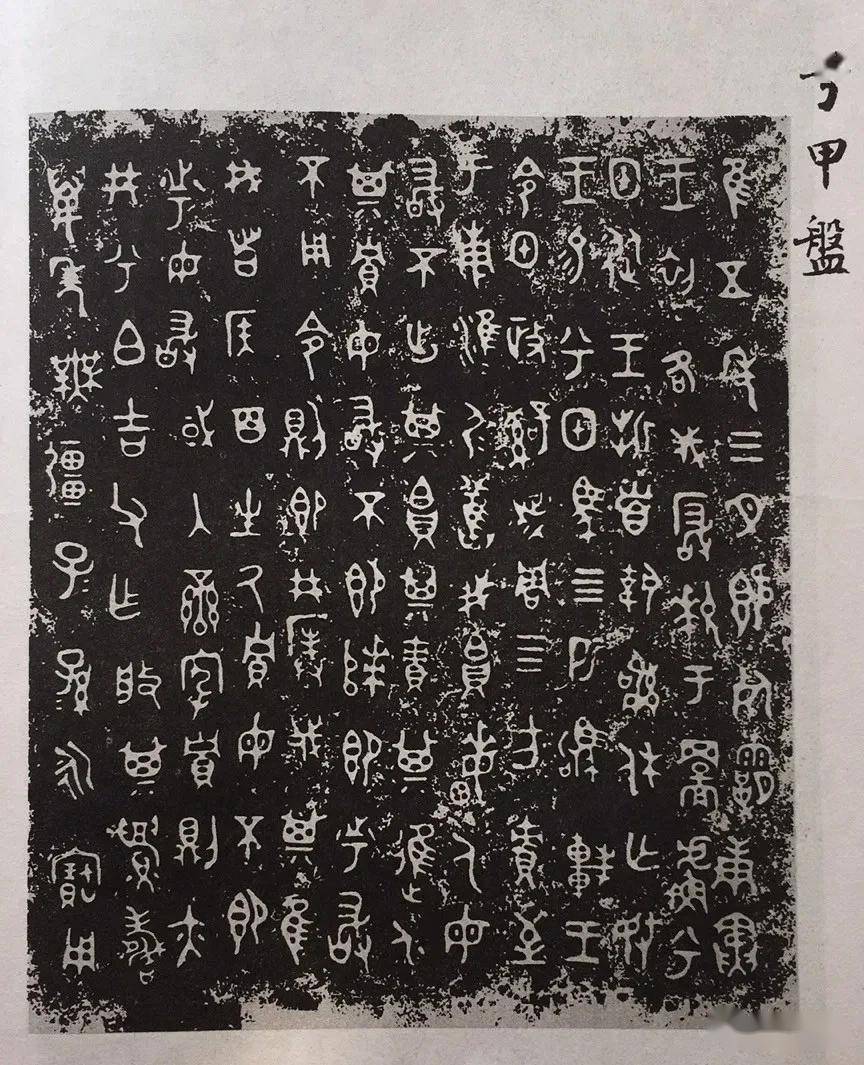 兮甲盤
隹五年三月既死霸庚寅
王初各伐玁狁于䣙𧇾兮
甲從王折首執訊休亡敃
王易兮甲馬四匹駒車王
令甲政𤔲成周四方責至
于南淮尸淮尸舊我帛畮人毋
敢不出其帛其責其進人
其貯毋敢不即次即市敢
不用令則即井撲伐其隹
我者侯百生厥貯毋不即
市毋敢或入蠻宄貯則亦
井兮白吉父乍般其眉壽
萬年無疆子子孫孫永寶用